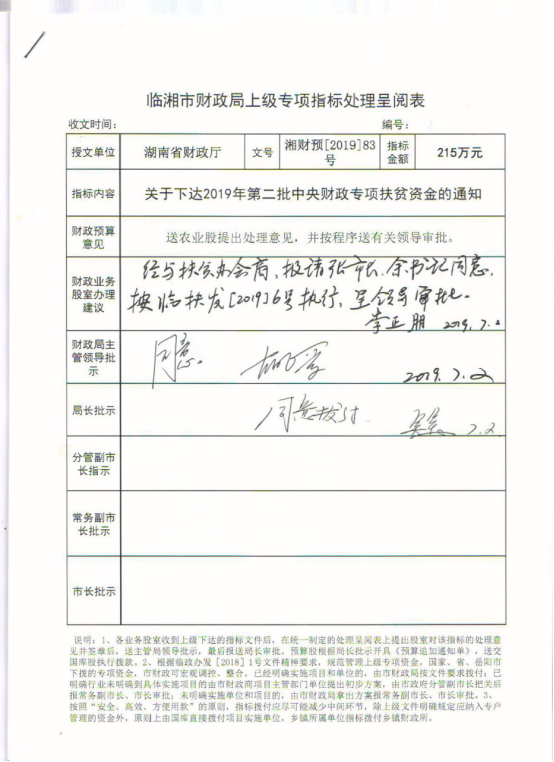 临湘市财政局上级专项指标处理呈阅表
收文时间： 编号：
授文单位 湖南省财政厅 文号 湘财预[2019]83号 指标金额 215万元
指标内容 关于下达2019年第二批中央财政专项扶贫资金的通知
财政预算意见 送农业股提出处理意见，并按程序送有关领导审批。
财政业务股室办理建议
经与扶贫办会商，报请张市长、余书记同意，
按临扶发[2019]6号执行，呈领导审批。
李正朋 2019.7.2
财政局主管领导批示 同意。 2019.7.2
局长批示 同意拨付. 7.2.
分管副市长指示
常务副市长批示
市长批示
说明：1、各业务股室收到上级下达的指标文件后，在统一制定的处理呈阅表上提出股室对该指标的处理意
见并签章后，送主管局领导批示，最后报送局长审批。预算股根据局长批示开具《预算追加通知单》，送交
国库股执行拨款。2、根据临政办发［2018］1号文件精神要求，规范管理上级专项资金，国家、省、岳阳市
下拨的专项资金，市财政可宏观调控、整合。已经明确实施项目和单位的，由市财政局按文件要求拨付；已
明确行业未明确到具体实施项目的由市财政商项目主管部门单位提出初步方案，由市政府分管副市长把关后
报常务副市长、市长审批；未明确实施单位和项目的，由市财政局拿出方案报常务副市长、市长审批。3、
按照“安全、高效、方便用款”的原则，指标拨付应尽可能减少中间环节，除上级文件明确规定应纳入专户
管理的资金外，原则上由国库直接拨付项目实施单位，乡镇所属单位指标拨付乡镇财政所。